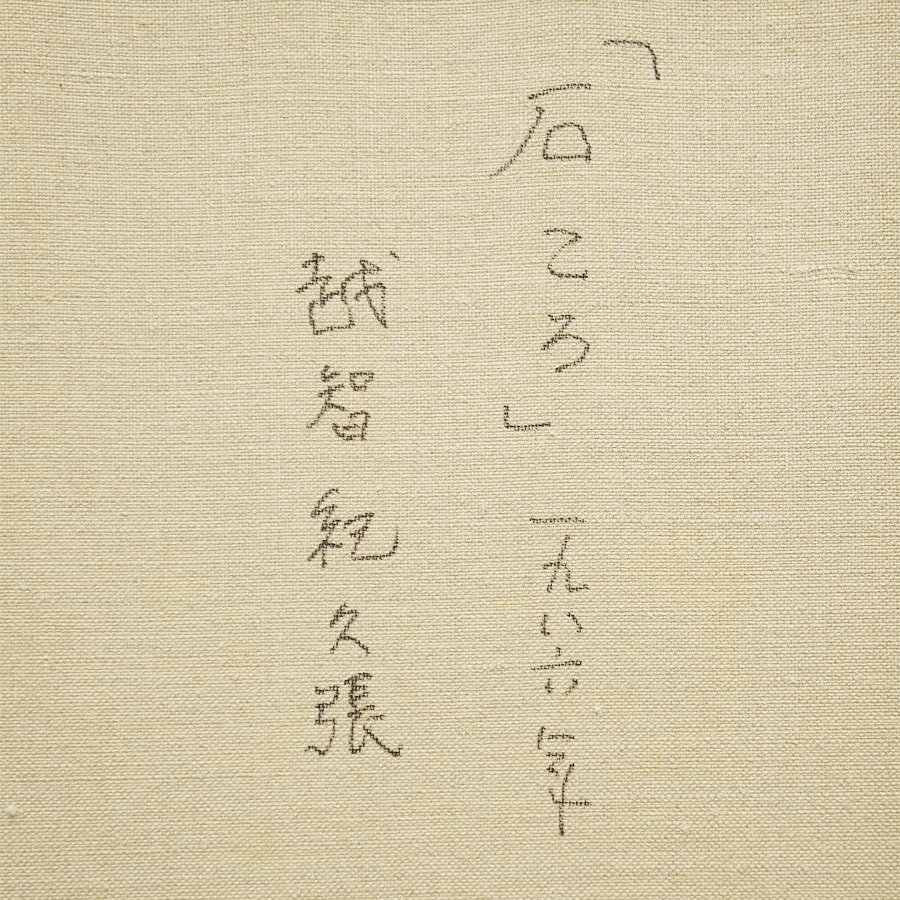 「石ころ」一九八六年
越智紀久張